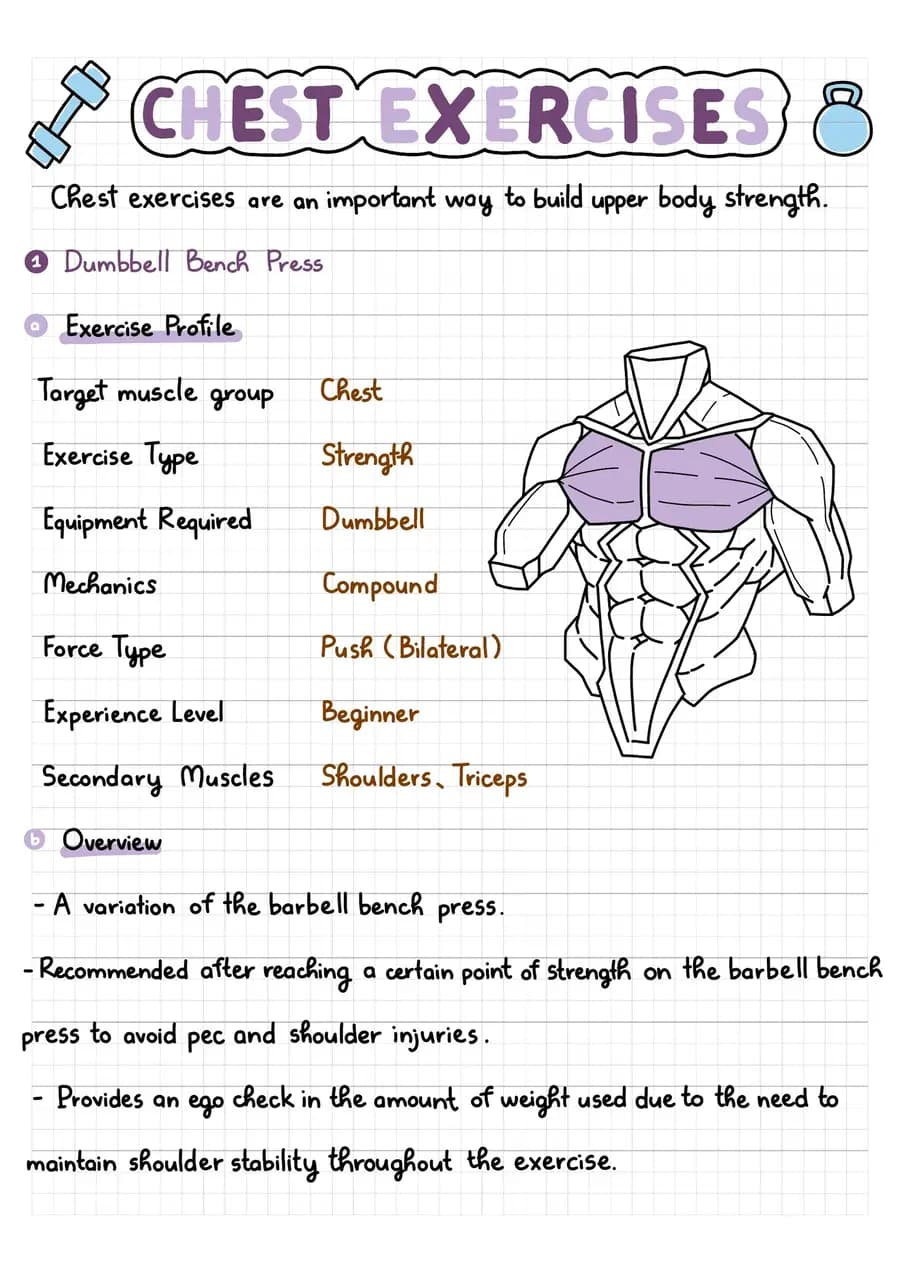 CHEST EXERCISES
Chest exercises are an important way to build upper body strength.
1 Dumbbell Bench Press
a Exercise Profile
Target muscle group Chest
Exercise Type Strength
Equipment Required Dumbbell
Mechanics Compound
Force Type Push (Bilateral)
Experience Level Beginner
Secondary Muscles Shoulders、Triceps
b Overview
- A variation of the barbell bench press.
- Recommended after reaching a certain point of strength on the barbell bench
press to avoid pec and shoulder injuries.
- Provides an ego check in the amount of weight used due to the need to
maintain shoulder stability throughout the exercise.